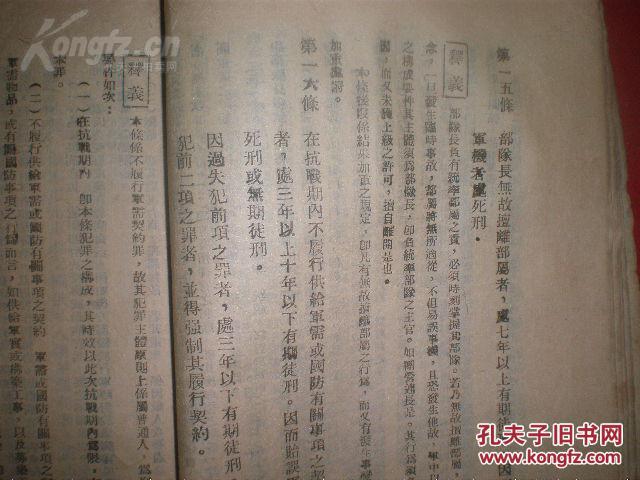 第一五條　部隊長無故擅離部屬者，處七年以上有期徒
軍機者處死刑．
釋義　部隊長負有統率部屬之責，必須時刻掌握其部隊。若乃無故擅離部屬，
念，一旦發生臨時事故，部屬將無所適從，不但易誤事機，且恐發生他故
之構成要件其主體須爲部隊長，卽負統率部隊之主官。如團營連長是。其行爲須
因，而又未獲上級之許可，擅自離開是也。
本條後段係結果加重之規定，卽凡有無故擅離部屬之行爲，而又有發生
加重處罰。
第一六條　在抗戰期內不履行供給軍需或國防有關事項之契
者，處三年以上十年以下有期徒刑。因而貽誤
死刑或無期徒刑。
因過失犯前項之罪者，處三年以下有期徒刑
犯前二項之罪者，並得强制其履行契約。
釋義　本條係不履行軍需契約罪，故其犯罪主體原則上係屬普通人，
要件如次：
（一）在抗戰期內　卽本條犯罪之構成，其時效以此次抗戰期內爲限。
本罪。
（二）不履行供給軍需或國防有關事項之契約　軍需或國防有關事項之
軍需物品，或有關國防事項之行爲而言，如供給軍實或構築工事，以及
Kongfz.cn
中国收藏热线
孔夫子旧书网
www.kongfz.com